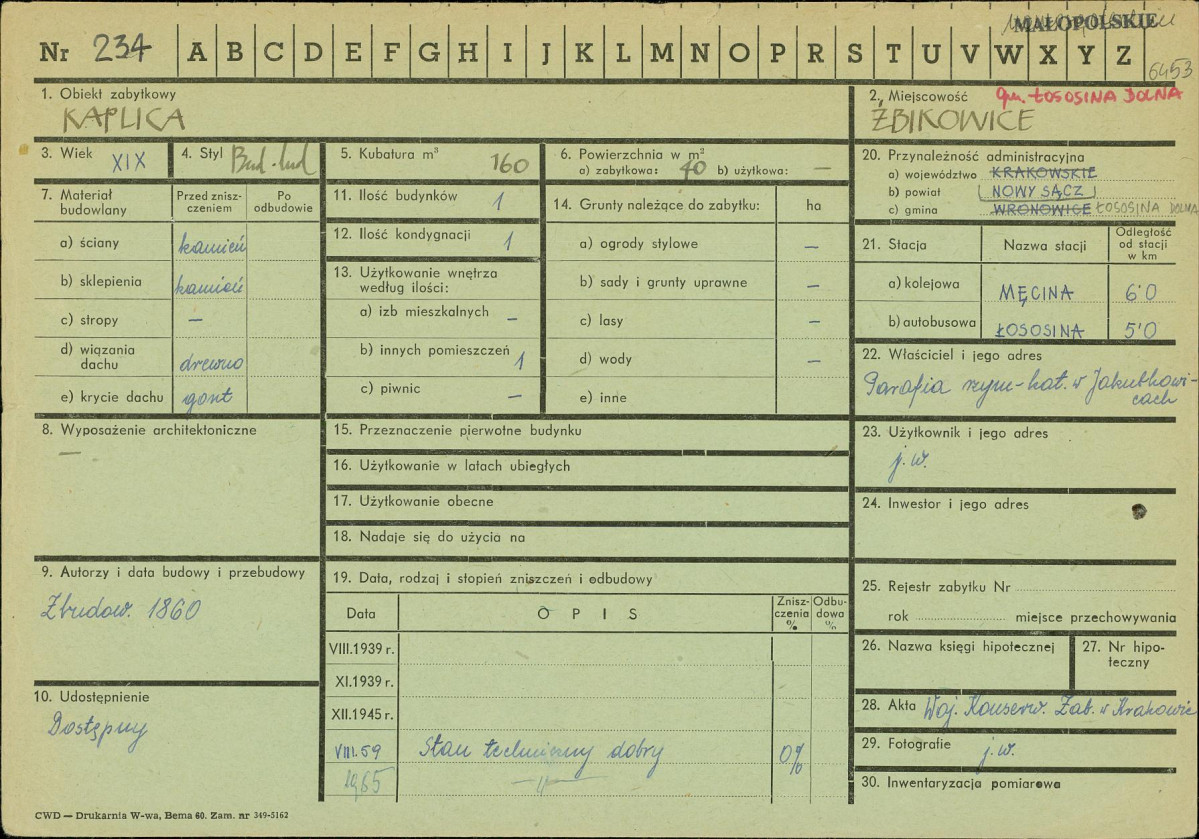 MAŁOPOLSKIE
Nr 234 A B C D E F G H I J K L M N O P R S T U V W X Y Z
6453
1. Obiekt zabytkowy
KAPLICA
2. Miejscowość gm. ŁOSOSINA DOLNA
ŻBIKOWICE
3. Wiek XIX
4. Styl Bud-lud
5. Kubatura m³ 160
6. Powierzchnia w m²
a) zabytkowa: 40 b) użytkowa: —
7. Materiał budowlany
Przed zniszczeniem
Po odbudowie
a) ściany kamień
b) sklepienia kamień
c) stropy —
d) wiązania dachu drewno
e) krycie dachu gont
8. Wyposażenie architektoniczne
—
9. Autorzy i data budowy i przebudowy
Zbudow. 1860
10. Udostępnienie
Dostępny
11. Ilość budynków 1
12. Ilość kondygnacji 1
13. Użytkowanie wnętrza
według ilości:
a) izb mieszkalnych —
b) innych pomieszczeń 1
c) piwnic —
14. Grunty należące do zabytku: ha
a) ogrody stylowe —
b) sady i grunty uprawne —
c) lasy —
d) wody —
e) inne
15. Przeznaczenie pierwotne budynku
16. Użytkowanie w latach ubiegłych
17. Użytkowanie obecne
18. Nadaje się do użycia na
19. Data, rodzaj i stopień zniszczeń i odbudowy
Data
O P I S
Zniszczenia %
Odbudowa %
VIII.1939 r.
XI.1939 r.
XII.1945 r.
VIII.59 Stan techniczny dobry 0%
1965 —"—
20. Przynależność administracyjna
a) województwo KRAKOWSKIE
b) powiat NOWY SĄCZ
c) gmina WRONOWICE ŁOSOSINA DOLNA
21. Stacja
Nazwa stacji
Odległość od stacji w km
a) kolejowa MĘCINA 6'0
b) autobusowa ŁOSOSINA 5'0
22. Właściciel i jego adres
Parafia rzym-kat. w Jakubkowi-
cach
23. Użytkownik i jego adres
j.w.
24. Inwestor i jego adres
25. Rejestr zabytku Nr
rok miejsce przechowywania
26. Nazwa księgi hipotecznej
27. Nr hipo-
teczny
28. Akta Woj. Konserw. Zab. w Krakowie
29. Fotografie j.w.
30. Inwentaryzacja pomiarowa
CWD — Drukarnia W-wa, Bema 60. Zam. nr 349-5162